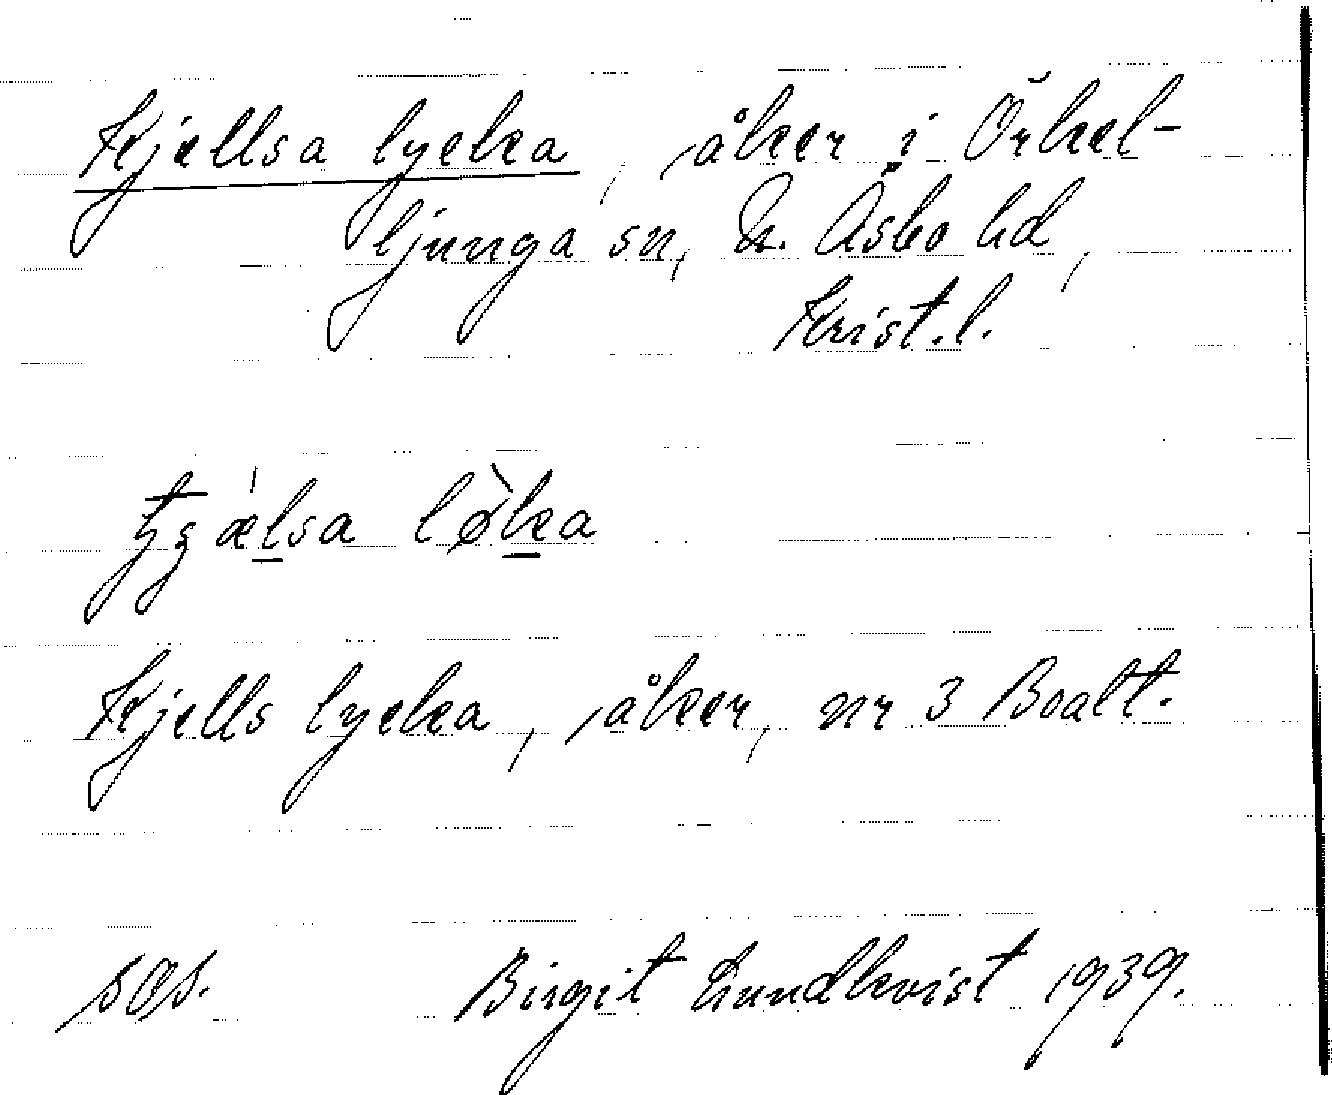 Kjellsa lycka, åker i Örkel-
ljunga sn, N. Åsbo hd,
Krist.l.
løka
Kjells lycka, åker, nr 3 Boalt.
sås.
Birgit Lundkvist 1939.